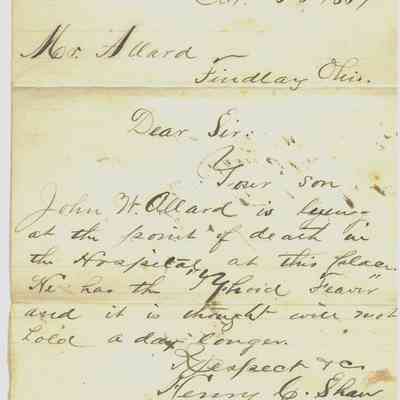 Mr. Allard
Findlay Ohio.
Dear Sir.
Your son
John W. Allard is lying
at the point of death in
the Hospetal at this place.
He has the "Typhoid Feaver"
and it is thought will not
hold a day longer.
Respect &c
Henry C. Shaw